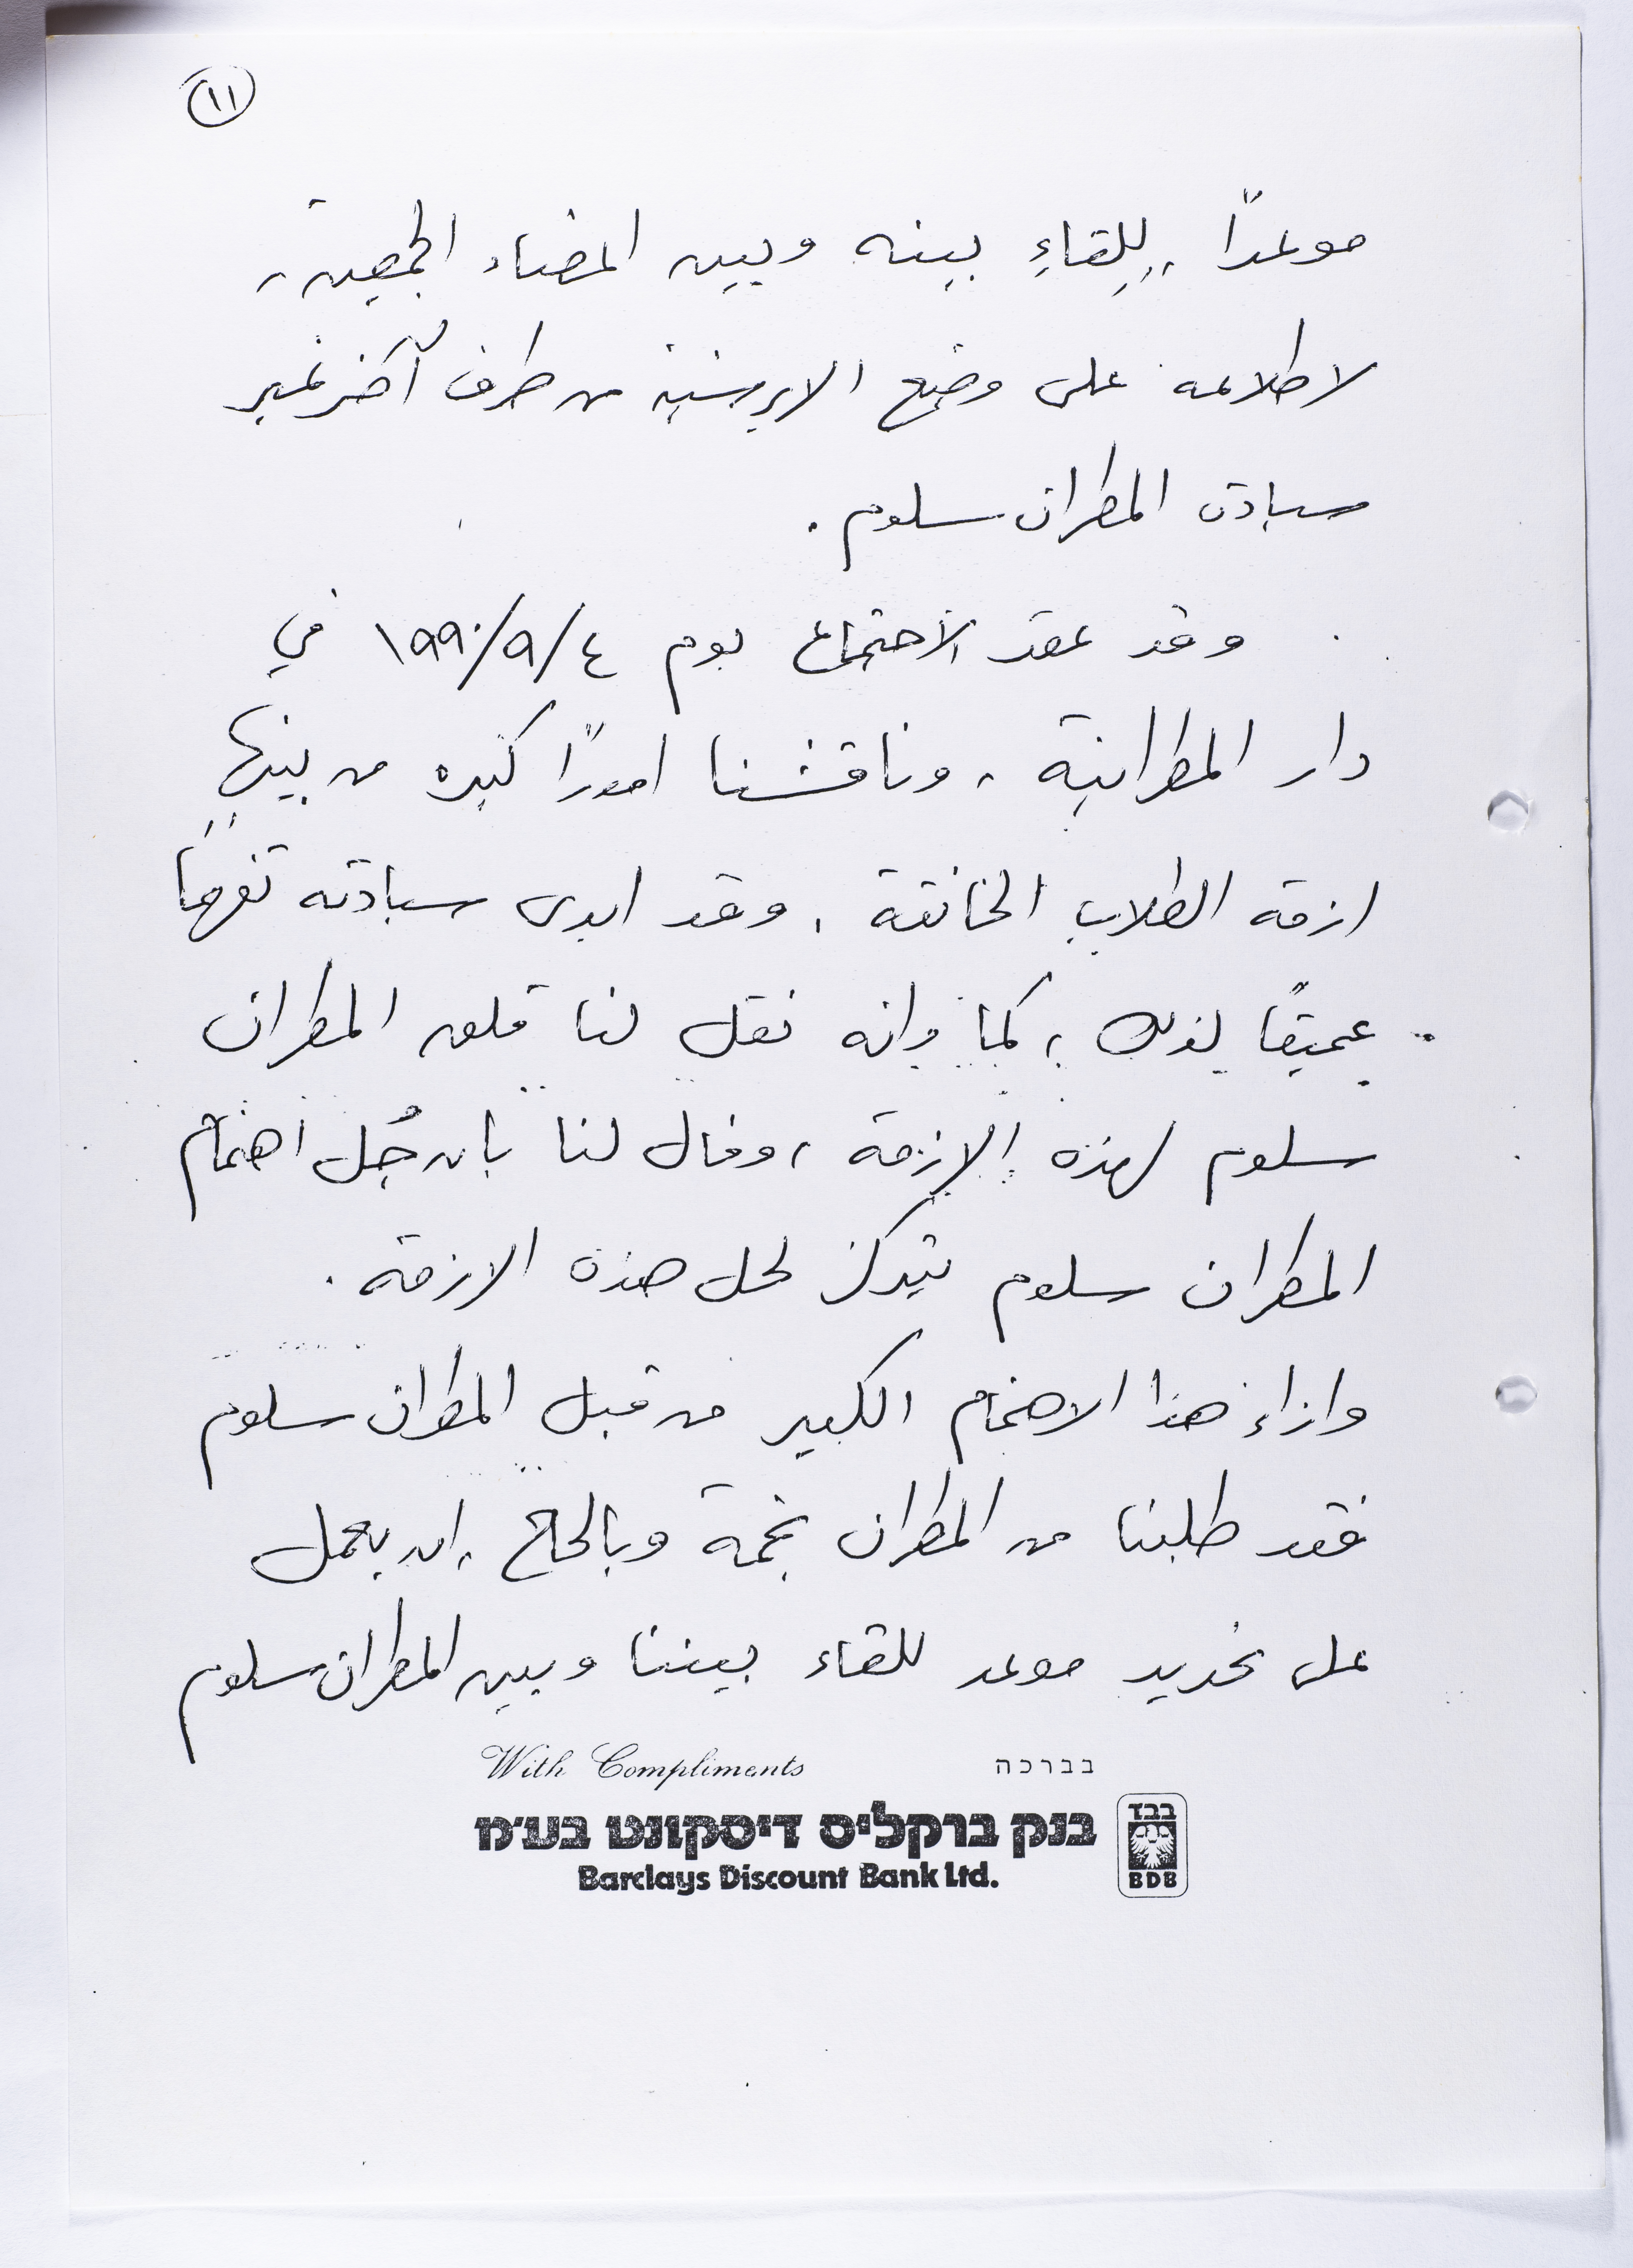 ١١
موعدًا للقاءِ بينه وبين اعضاء الجمعية ،
لاطلاعه على وضع الابرشية من طرف آخر غير
سيادة المطران سلوم .
وقد عقد الاجتماع يوم ٤/٩/١٩٩٠ في
دار المطرانية ، وناقشنا امورًا كثيره من بينها
ازمة الطلاب الخانقة . وقد ابدى سيادته تفهمًا
عميقًا لذلك ، كما وانه نقل لنا قلق المطران
سلوم لهذه الازمة ، وقال لنا بان جُل اهتمام
المطران سلوم يتركز لحل هذه الازمة .
وازاء هذا الاهتمام الكبير من قبل المطران سلوم
فقد طلبنا من المطران نجمة وبالحاح ، ان يعمل
على تحديد موعد للقاء بيننا وبين المطران سلوم
With Compliments בברכה
בנק ברקליס דיסקונט בע״מ
Barclays Discount Bank Ltd.
בבד
BDB